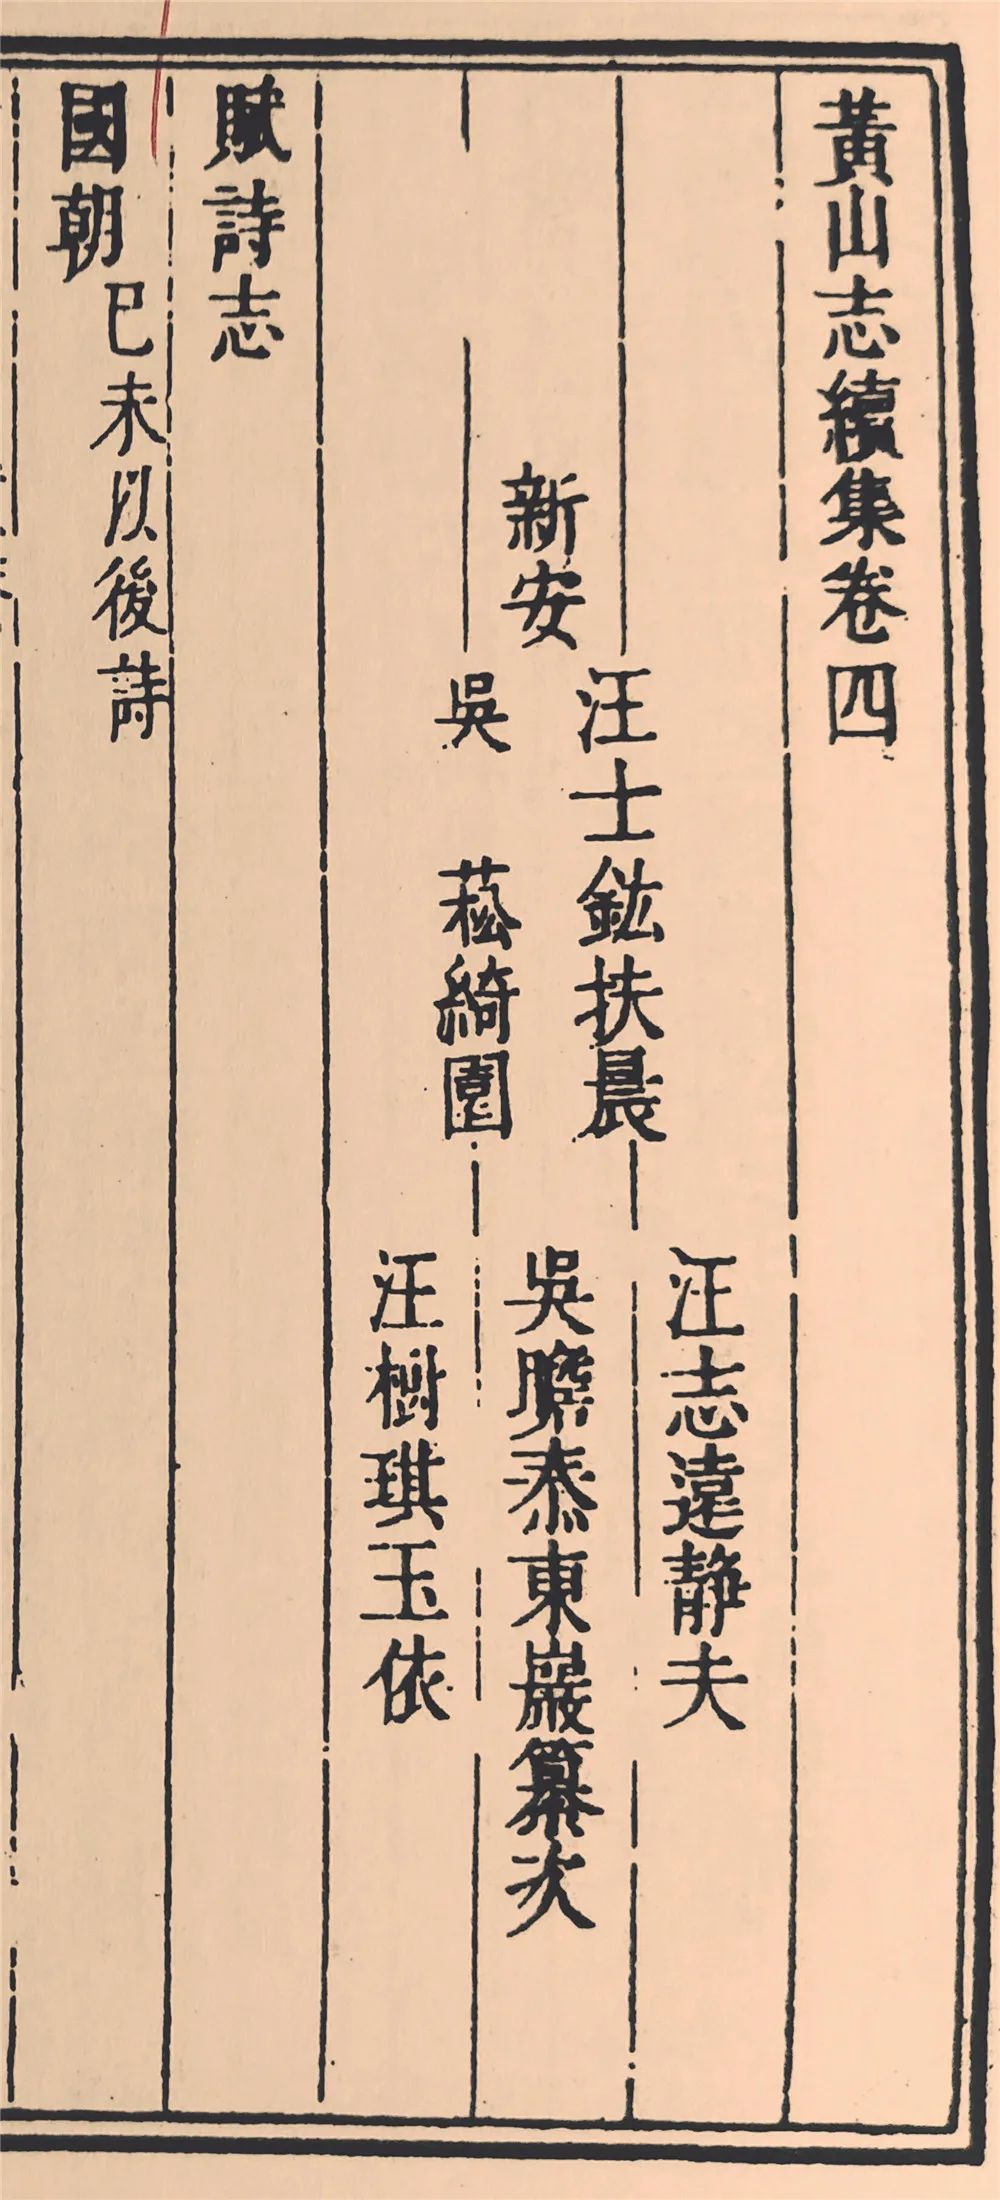 黃山志續集卷四
汪志遠靜夫
汪士鈜扶晨
新安
吳瞻泰東巖纂次
吳　菘綺園
汪樹琪玉依
賦詩志
國朝
已未以後詩